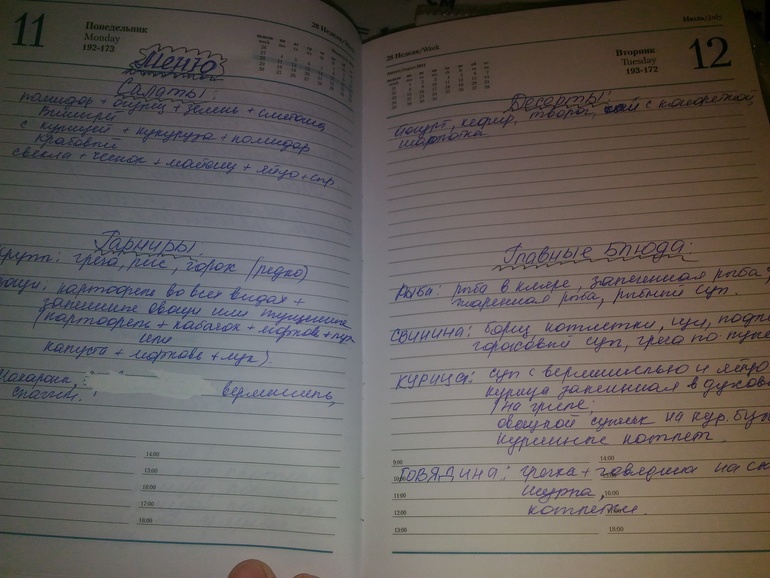 11
Понедельник
Monday
192-173
28 Неделя/Week
Меню
Салаты:
помидор + огурец + зелень + сметана
с курицей + кукуруза + помидор
крабовый
свекла + чеснок + майонез + яйцо + сыр
Гарниры:
Крупы: греча, рис, горох (редко)
Овощи: картофель во всех видах +
запечные овощи или тушеные
(картофель + кабачок + морковь + лук
или
капуста + морковь + лук).
Макароны,
вермишель,
14:00
15:00
16:00
17:00
18:00
28 Неделя/Week
Июль/July
Вторник
Tuesday
193-172
12
Десерты:
йогурт, кефир, творог, чай с конфеткой,
шарлотка
Главные блюда:
Рыба: рыба в кляре, запеченная рыба,
жаренная рыба, рыбный суп.
СВИНИНА: борщ, котлетки, щи,
гороховый суп, греча по-
КУРИЦА: суп с вермишелью и яйцо
курица запеченая в духов
/на гриле;
овощной супчик на кур. бул
куриные котлет.
9:00
14:00
10:00
ГОВЯДИНА: гречка + говядина на ск
11:00
шурпа,
16:00
12:00
котлеты.
13:00
18:00